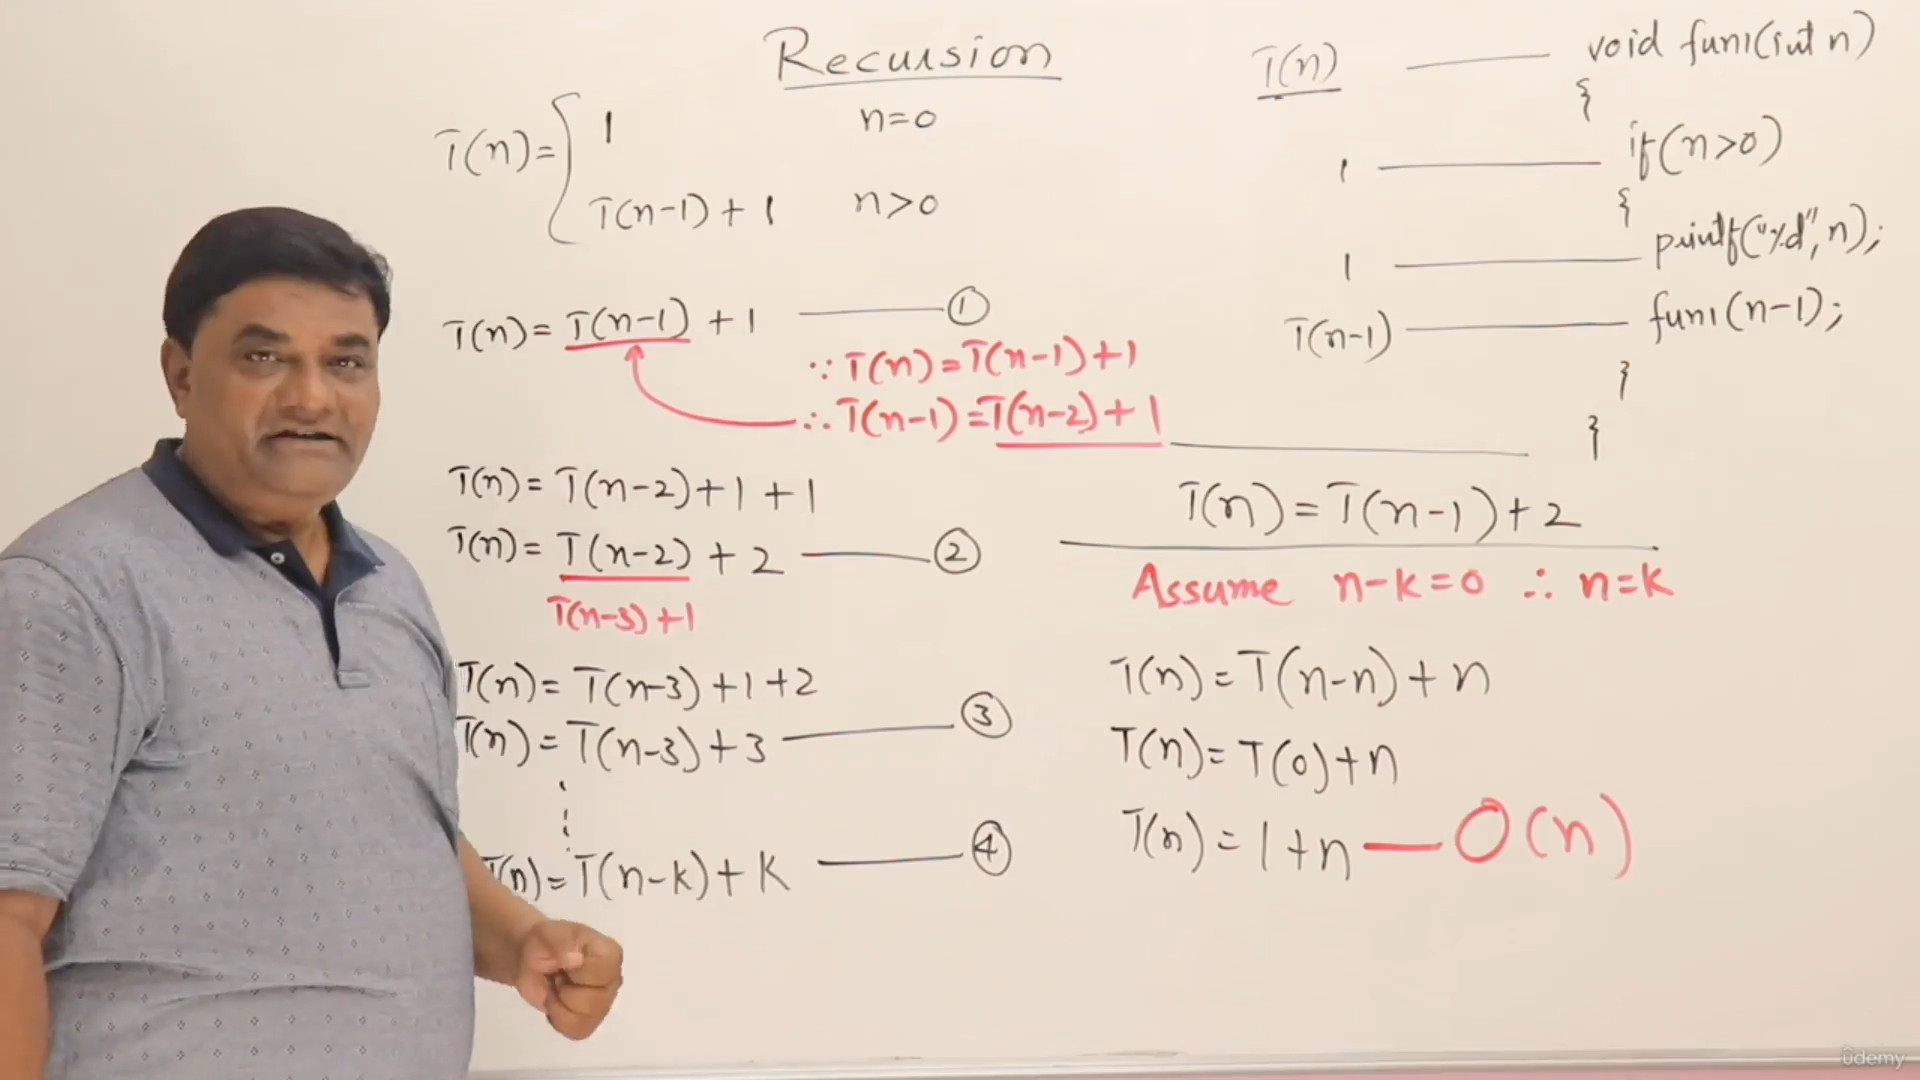 Recursion
T(n)= { 1 n=0
T(n-1)+1 n>0
T(n)= T(n-1) + 1 ——— ①
∵ T(n)=T(n-1)+1
∴ T(n-1)=T(n-2)+1
T(n)= T(n-2)+1+1
T(n)= T(n-2) + 2 ——— ②
T(n-3)+1
T(n)= T(n-3)+1+2
T(n)= T(n-3)+3 ——— ③
T(n)= T(n-k)+k ——— ④
T(n) ——— void fun1(int n)
{
1 ——— if(n>0)
{
1 ——— printf("%d", n);
T(n-1) ——— fun1(n-1);
}
}
T(n)=T(n-1)+2
Assume n-k=0 ∴ n=k
T(n)=T(n-n)+n
T(n)=T(0)+n
T(n)=1+n — O(n)
ûdemy